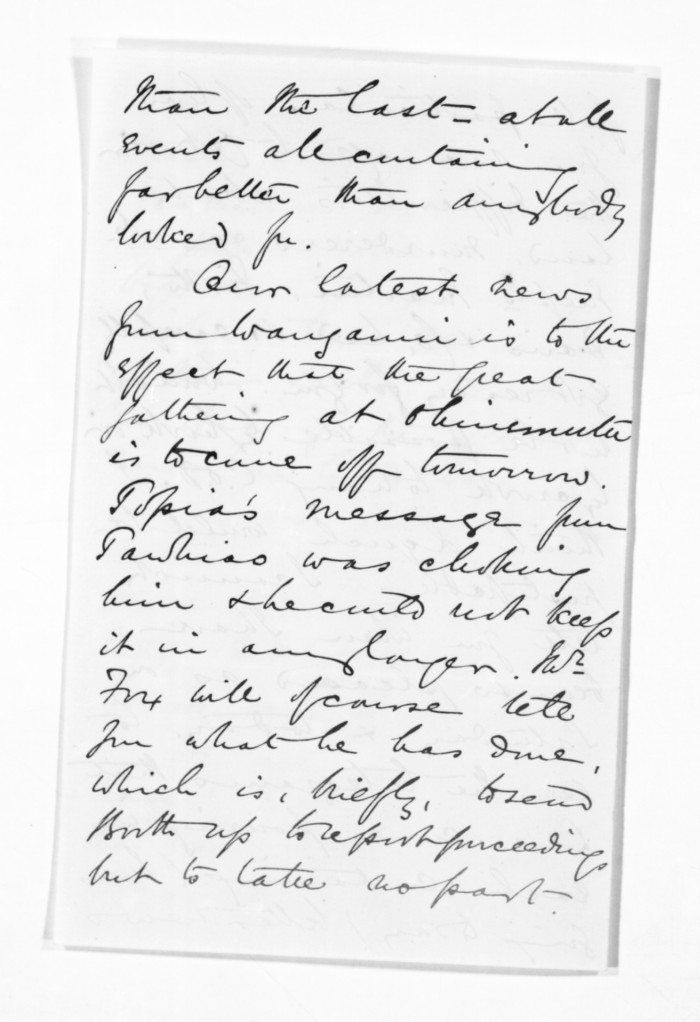 than the last - at all
events all curtaining
far better than anybody
looked for.
Our latest news
from Wanganui is to the
effect that the great
gathering at Ohinemutu
is to come off tomorrow.
Topia's message from
Tawhiao was choking
him & he could not keep
it in any longer. Mr
Fox will of course tell
you what he has done,
which is, briefly, to send
Booth up to report proceedings
but to take no part